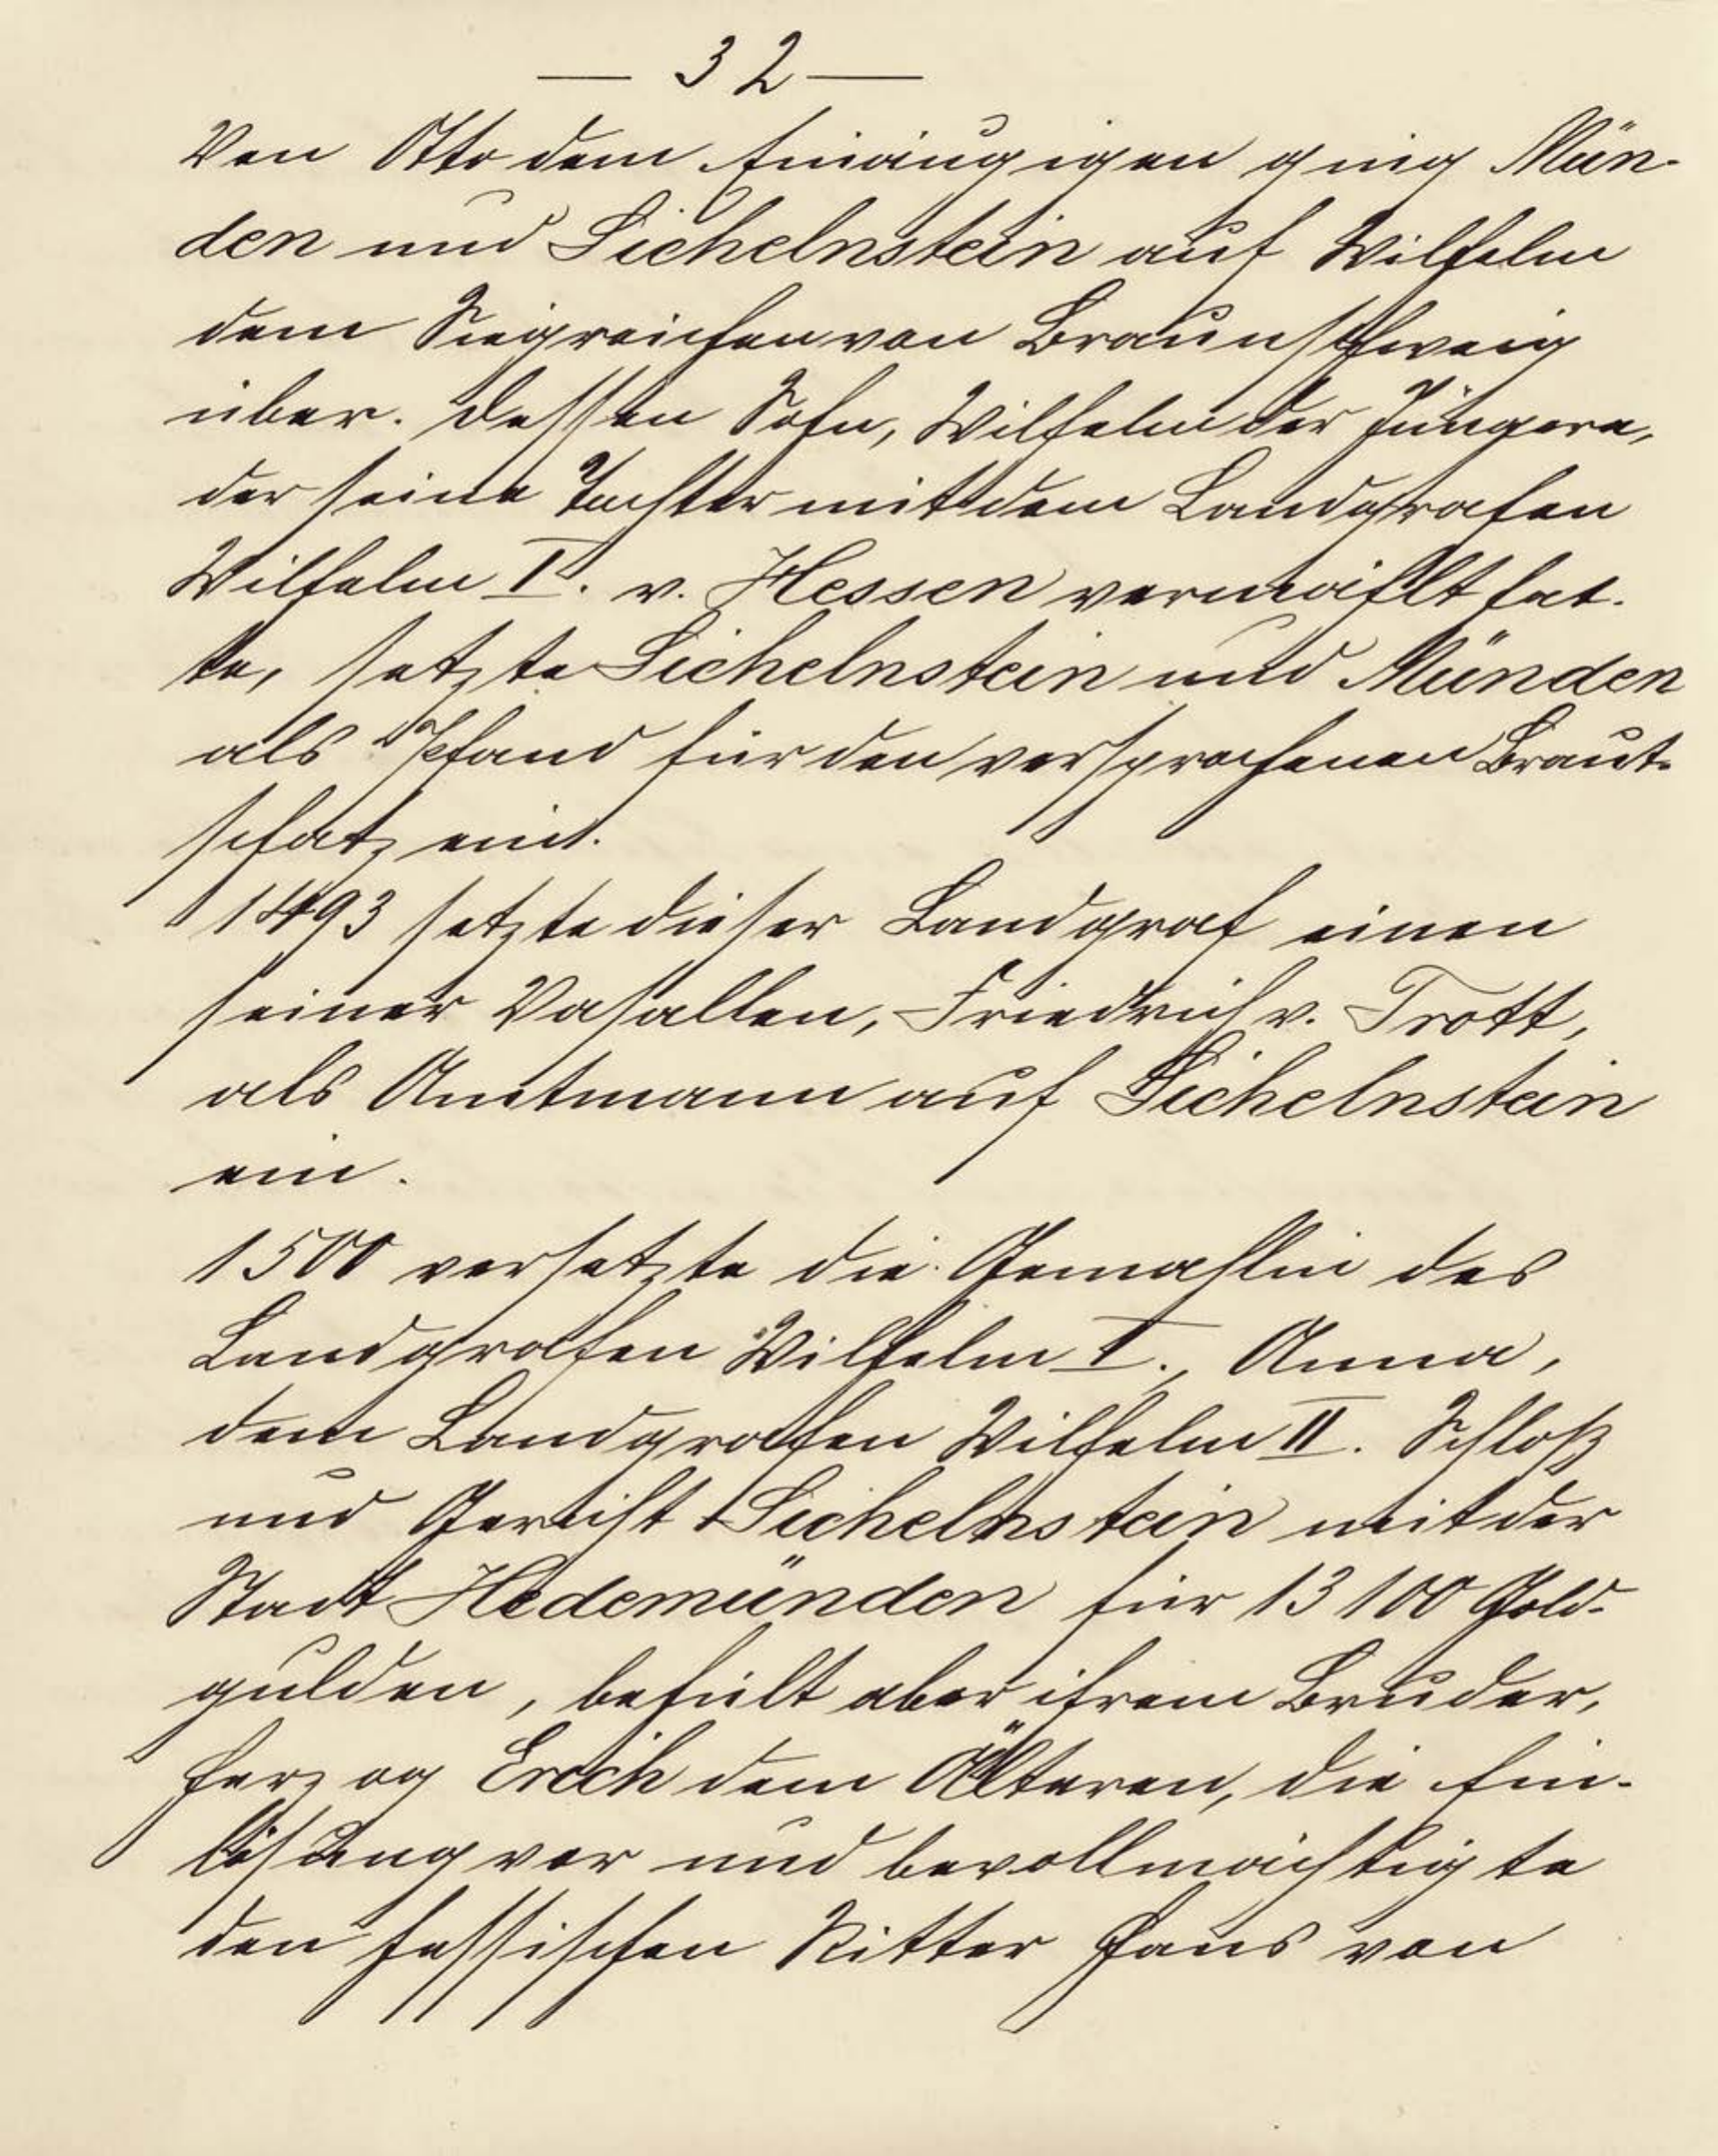 — 32 —
Von Otto dem Einäugigen ging Mün-
den und Sichelnstein auf Wilhelm
dem Siegreichen von Braunschweig
über. Dessen Sohn, Wilhelm der Jüngere,
der seine Tochter mit dem Landgrafen
Wilhelm I. v. Hessen vermählt hat-
te, setzte Sichelnstein und Münden
als Pfand für den versprochenen Braut-
schatz ein.
1493 setzte dieser Landgraf einen
seiner Vasallen, Friedrich v. Trott,
als Amtmann auf Sichelnstein
ein.
1500 versetzte die Gemahlin des
Landgrafen Wilhelm I., Anna,
dem Landgrafen Wilhelm II. Schloß
und Gericht Sichelnstein mit der
Stadt Hedemünden für 13100 Gold-
gulden, behielt aber ihrem Bruder,
Herzog Erich dem Älteren, die Ein-
lösung vor und bevollmächtigte
den hessischen Ritter Hans von